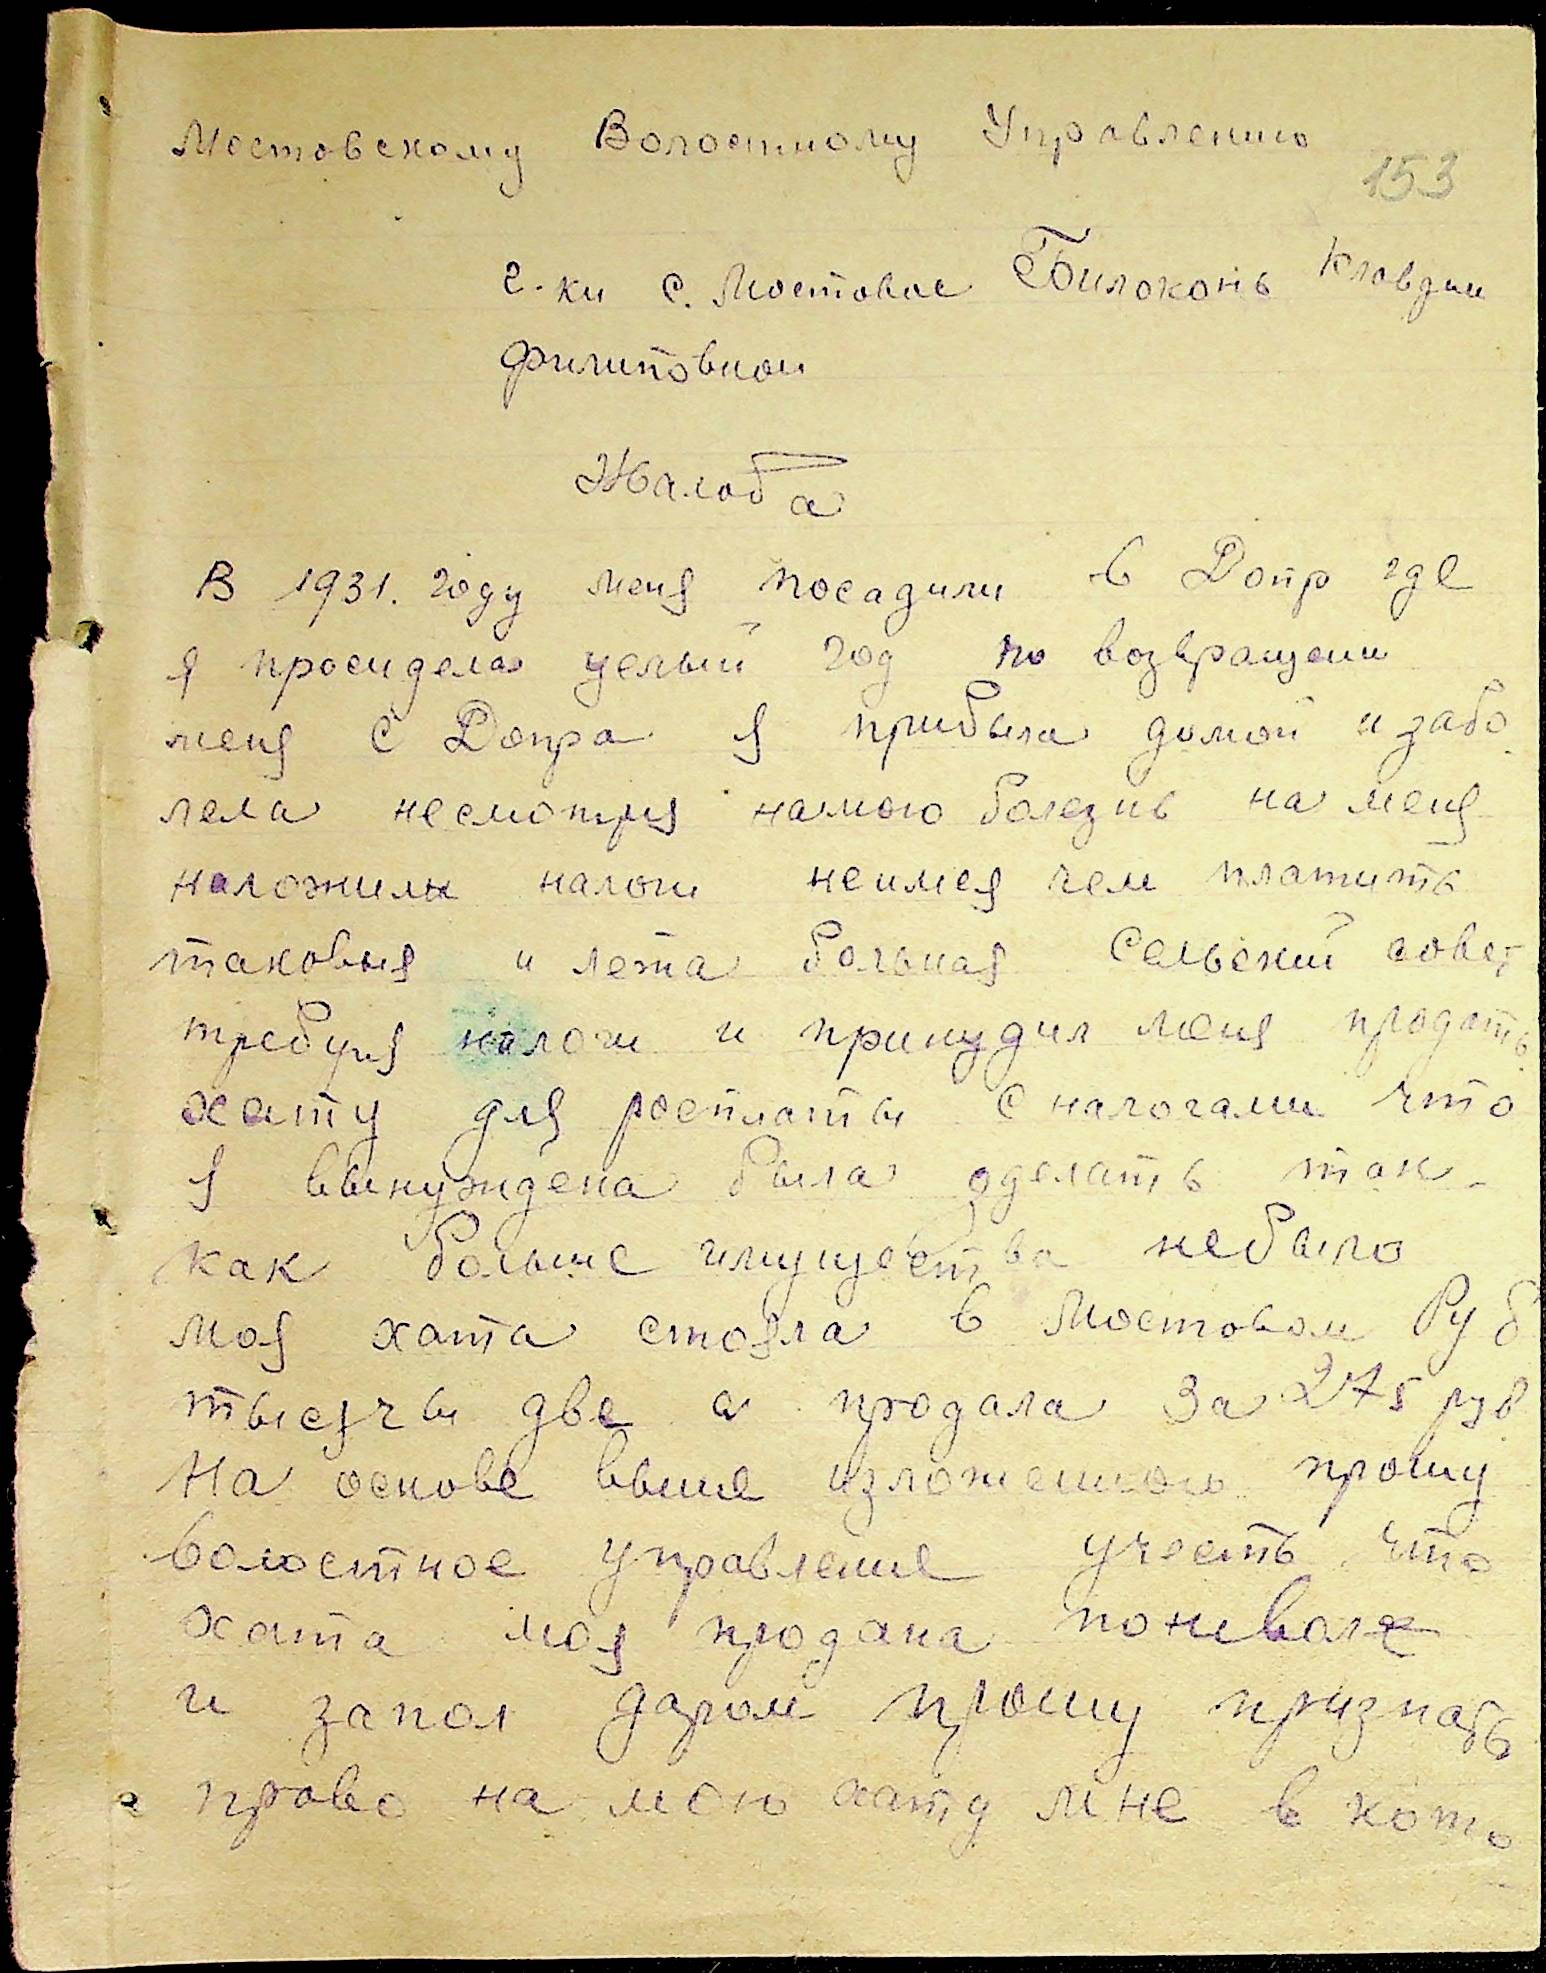 Мостовскому Волостному Управлению
153
г-ки с. Мостовое Билоконь Клавдии
Филиповной
Жалоба
В 1931. году меня посадили в Допр где
я просидела целый год по возвращени
меня с Допра я прибыла домой и забо
лела несмотря намою болезнь на меня
наложили налоги неимея чем платить
таковыя и лежа больная Сельский совет
требуя налоги и принудил меня продать
хату для росплаты с налогами что
я вынуждена была зделать так-
как больше имущества небыло
моя хата стояла в Мостовом Руб
тысячы две а продала за 275 руб
На основе выше изложенного прошу
волостное управление учесть что
хата моя продана поневоле
и запол даром прошу признать
право на мою хату мне в кото